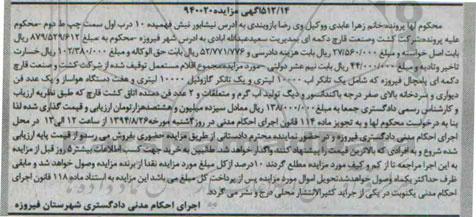 ۵۱۲/۱۴آگهی مزایده۹۴۰۰۲۰
محکوم لها پرونده:خانم زهرا عابدی ووکیل وی رضا بازوبندی به آدرس نیشابور نبش فهمیده ۱۰ درب اول سمت چپ ط دوم -محکوم
علیه پرونده:شرکت کشت وصنعت قارچ دکمه ای بمدیریت سعیدعبداله ابادی به آدرس شهر فیروزه -محکوم به مبلغ ۸۷۹/۵۲۹/۶۱۲ ریال
بابت اصل خواسته و مبلغ ۲۷/۵۶۰/۰۰۰ ریال بابت هزینه دادرسی و ۵۲/۷۷۱/۷۷۶ ریال بابت حق الوکاله و مبلغ ۱۰۲/۳۸۰/۰۰۰ ریال خسارت
تاخیر وتادیه و مبلغ ۴۴/۰۰۰/۰۰۰ ریال بابت نیم عشر دولتی - مورد مزایده:مجموع اقلام مستعمل توقیف شده از شرکت کشت و صنعت قارچ
دکمه ای یلمچال فیروزه که شامل یک تانکر اب ۱۰۰۰۰ لیتری و یک تانکر گازوئیل ۱۰۰۰۰ لیتری و هفت دستگاه هواساز و یک عدد فن
دیواری و سردخانه بالای صفر درجه باکندانسور و دیگ تولید اب گرم و متعلقات و ۲ عدد فن دمنده اتاق کشت قارچ که طبق نظریه ارزیاب
و کارشناس رسمی دادگستری جمعا به مبلغ ۱۳/۸۰۰/۰۰۰ ریال معادل سیزده میلیون و هشتصدهزارتومان ارزیابی و قیمت گذاری شده لذا
بنا به درخواست محکوم لها و به تجویز ماده ۱۱۴ قانون اجرای احکام مدنی در روز۳شنبه مورخه۱۳۹۴/۸/۲۶ از ساعت ۱۲ الی۱۳ در محل
اجرای احکام مدنی دادگستری فیروزه و در حضور نماینده محترم دادستانی از طریق مزایده حضوری بفروش می رسد و از قیمت پایه ارزیابی
شده شروع و به افرادی که بالاترین قیمت را پیشنهاد کنند واگذار خواهد شد طالبین به خرید جهت کسب اطلاعات بیشتر۵ روز قبل از مزایده
به این اجرا مراجعه تا از کم و کیف مورد مزایده مطلع گردند ۱۰ درصد از کل مبلغ مورد مزایده نقدا از برنده مزایده وصول خواهد شد و مابقی
ظرف حداکثر یکماه وصول خواهدشدتحویل اموال مورد مزایده پس از پرداخت کل مبلغ می باشد این مزایده به استناد ماده ۱۱۸ قانون اجرای
احکام مدنی یکنوبت در یکی از جراید کثیرالانتشار محلی درج و نشر می گردد
اجرای احکام مدنی دادگستری شهرستان فیروزه